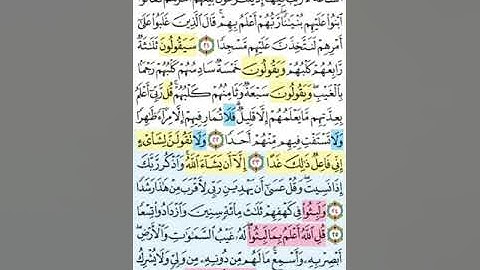 ٱبۡنُواْ عَلَيۡهِم بُنۡيَٰنٗاۖ رَّبُّهُمۡ أَعۡلَمُ بِهِمۡۚ قَالَ ٱلَّذِينَ غَلَبُواْ عَلَىٰٓ
أَمۡرِهِمۡ لَنَتَّخِذَنَّ عَلَيۡهِم مَّسۡجِدٗا ٢١ سَيَقُولُونَ ثَلَٰثَةٞ
رَّابِعُهُمۡ كَلۡبُهُمۡ وَيَقُولُونَ خَمۡسَةٞ سَادِسُهُمۡ كَلۡبُهُمۡ رَجۡمَۢا
بِٱلۡغَيۡبِۖ وَيَقُولُونَ سَبۡعَةٞ وَثَامِنُهُمۡ كَلۡبُهُمۡۚ قُل رَّبِّيٓ أَعۡلَمُ
بِعِدَّتِهِم مَّا يَعۡلَمُهُمۡ إِلَّا قَلِيلٞۗ فَلَا تُمَارِ فِيهِمۡ إِلَّا مِرَآءٗ ظَٰهِرٗا
وَلَا تَسۡتَفۡتِ فِيهِم مِّنۡهُمۡ أَحَدٗا ٢٢ وَلَا تَقُولَنَّ لِشَاْيۡءٍ
إِنِّي فَاعِلٞ ذَٰلِكَ غَدًا ٢٣ إِلَّآ أَن يَشَآءَ ٱللَّهُۚ وَٱذۡكُر رَّبَّكَ
إِذَا نَسِيتَ وَقُلۡ عَسَىٰٓ أَن يَهۡدِيَنِ رَبِّي لِأَقۡرَبَ مِنۡ هَٰذَا رَشَدٗا
٢٤ وَلَبِثُواْ فِي كَهۡفِهِمۡ ثَلَٰثَ مِاْئَةٖ سِنِينَ وَٱزۡدَادُواْ تِسۡعٗا
٢٥ قُلِ ٱللَّهُ أَعۡلَمُ بِمَا لَبِثُواْۖ لَهُۥ غَيۡبُ ٱلسَّمَٰوَٰتِ وَٱلۡأَرۡضِۖ
أَبۡصِرۡ بِهِۦ وَأَسۡمِعۡۚ مَا لَهُم مِّن دُونِهِۦ مِن وَلِيّٖ وَلَا يُشۡرِكُ